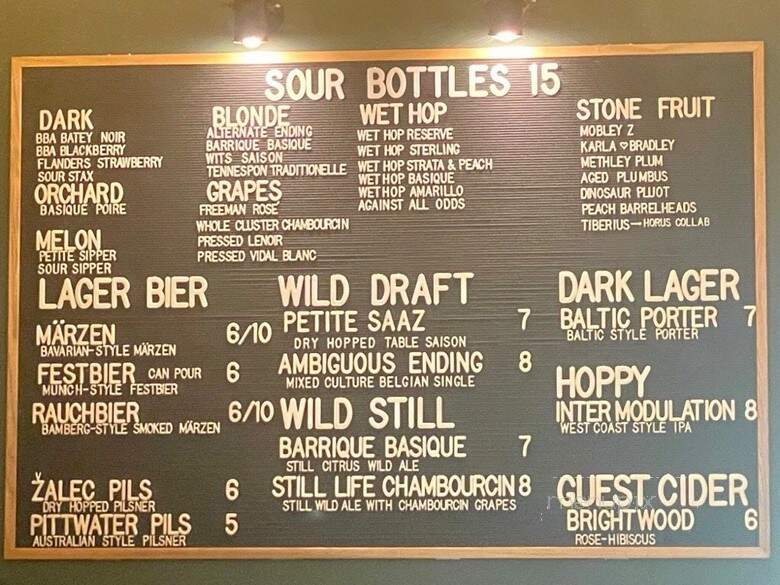 SOUR BOTTLES 15
DARK
BBA BATEY NOIR
BBA BLACKBERRY
FLANDERS STRAWBERRY
SOUR STAX
ORCHARD
BASIQUE POIRE
MELON
PETITE SIPPER
SOUR SIPPER
BLONDE
ALTERNATE ENDING
BARRIQUE BASIQUE
WITS SAISON
TENNESPON TRADITIONELLE
GRAPES
FREEMAN ROSE
WHOLE CLUSTER CHAMBOURCIN
PRESSED LENOIR
PRESSED VIDAL BLANC
WET HOP
WET HOP RESERVE
WET HOP STERLING
WET HOP STRATA & PEACH
WET HOP BASIQUE
WET HOP AMARILLO
AGAINST ALL ODDS
STONE FRUIT
MOBLEY Z
KARLA ♡ BRADLEY
METHLEY PLUM
AGED PLUMBUS
DINOSAUR PLUOT
PEACH BARRELHEADS
TIBERIUS—HORUS COLLAB
LAGER BIER
MÄRZEN 6/10
BAVARIAN-STYLE MÄRZEN
FESTBIER CAN POUR 6
MUNCH-STYLE FESTBIER
RAUCHBIER 6/10
BAMBERG-STYLE SMOKED MÄRZEN
ŽALEC PILS 6
DRY HOPPED PILSNER
PITTWATER PILS 5
AUSTRALIAN STYLE PILSNER
WILD DRAFT
PETITE SAAZ 7
DRY HOPPED TABLE SAISON
AMBIGUOUS ENDING 8
MIXED CULTURE BELGIAN SINGLE
WILD STILL
BARRIQUE BASIQUE 7
STILL CITRUS WILD ALE
STILL LIFE CHAMBOURCIN 8
STILL WILD ALE WITH CHAMBOURCIN GRAPES
DARK LAGER
BALTIC PORTER 7
BALTIC STYLE PORTER
HOPPY
INTER MODULATION 8
WEST COAST STYLE IPA
GUEST CIDER
BRIGHTWOOD 6
ROSE-HIBISCUS